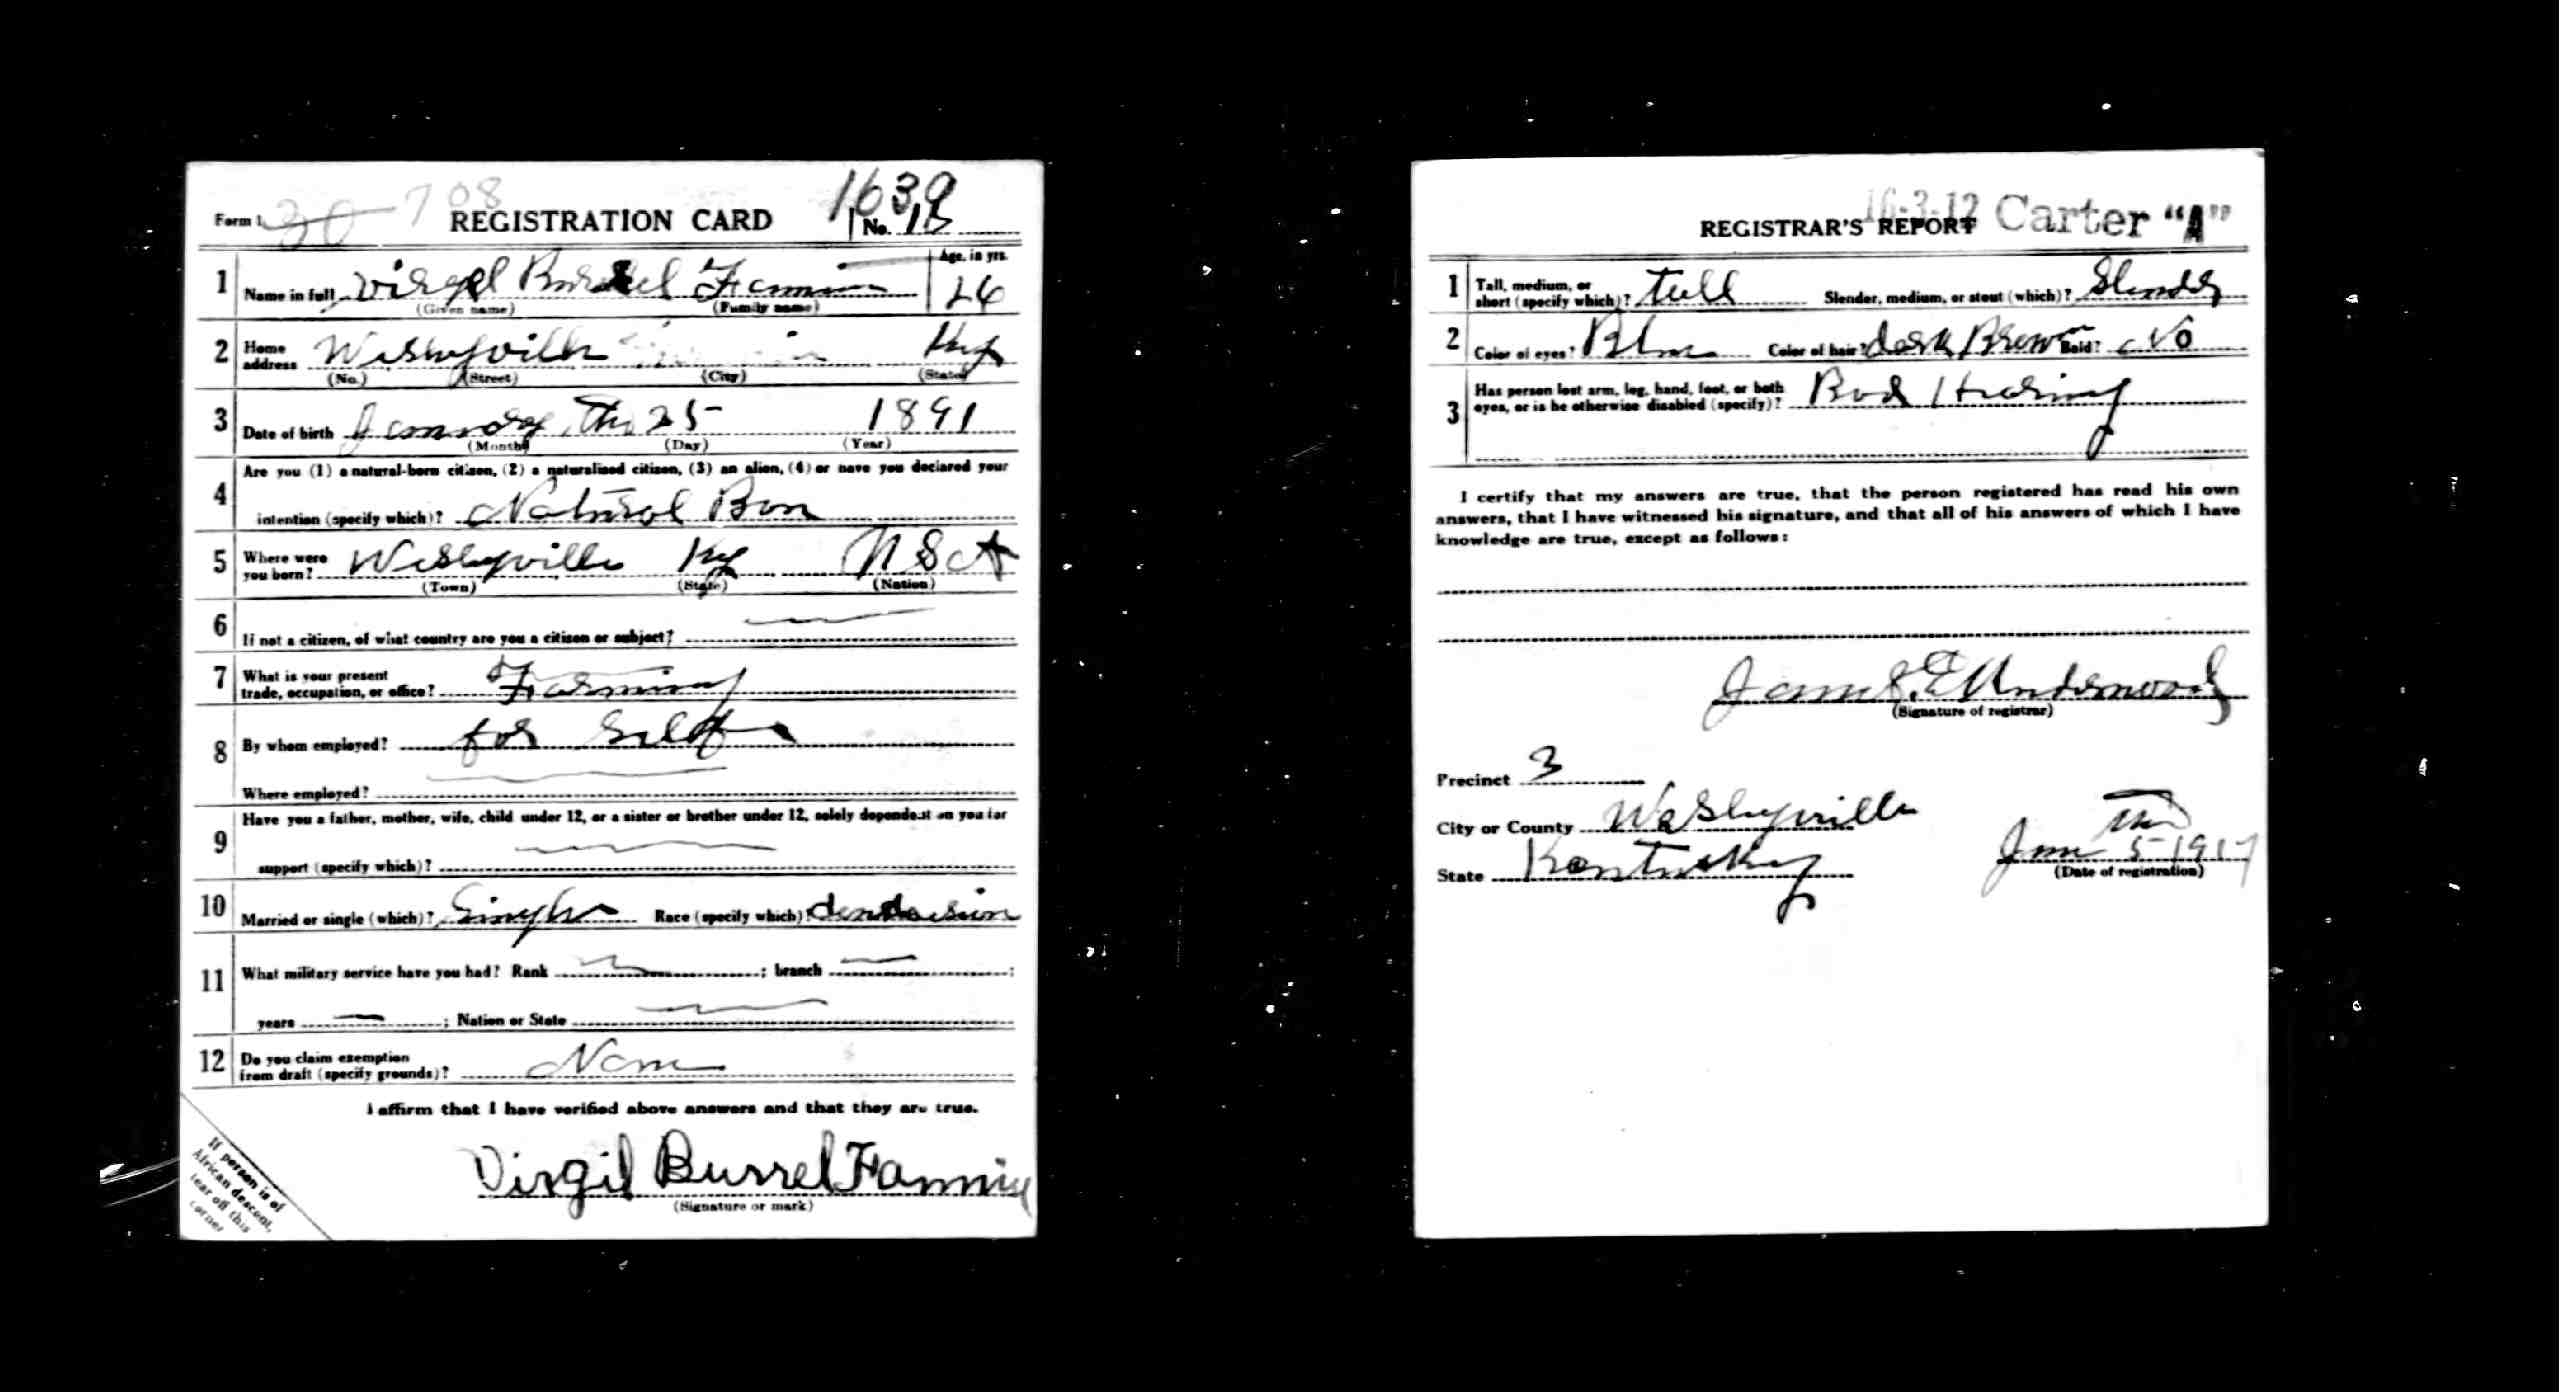 Form 1 30 708 REGISTRATION CARD 1639 No. 13
1 Name in full Virgel Burrel Fannin Age, in yrs. 26
(Given name) (Family name)
2 Home address Weslyville Ky
(No.) (Street) (City) (State)
3 Date of birth January Th 25 1891
(Month) (Day) (Year)
Are you (1) a natural-born citizen, (2) a naturalized citizen, (3) an alien, (4) or have you declared your
4 intention (specify which)? Natural Born
5 Where were you born? Weslyville Ky USA
(Town) (State) (Nation)
6 If not a citizen, of what country are you a citizen or subject?
7 What is your present trade, occupation, or office? Farming
8 By whom employed? for Self
Where employed?
Have you a father, mother, wife, child under 12, or a sister or brother under 12, solely dependent on you for
9 support (specify which)?
10 Married or single (which)? Single Race (specify which)?
11 What military service have you had? Rank ; branch ;
years ; Nation or State
12 Do you claim exemption from draft (specify grounds)? Non
I affirm that I have verified above answers and that they are true.
Virgil Burrel Fannin
(Signature or mark)
If person is of
African descent,
tear off this
corner
16-3-12 Carter "A"
REGISTRAR'S REPORT
1 Tall, medium, or short (specify which)? Tall Slender, medium, or stout (which)? Slender
2 Color of eyes? Blue Color of hair? dark Brown Bald? No
3 Has person lost arm, leg, hand, foot, or both eyes, or is he otherwise disabled (specify)? Bad Hearing
I certify that my answers are true, that the person registered has read his own
answers, that I have witnessed his signature, and that all of his answers of which I have
knowledge are true, except as follows:
James E Underwood
(Signature of registrar)
Precinct 3
City or County Weslyville
State Kentucky June 5 th 1917
(Date of registration)